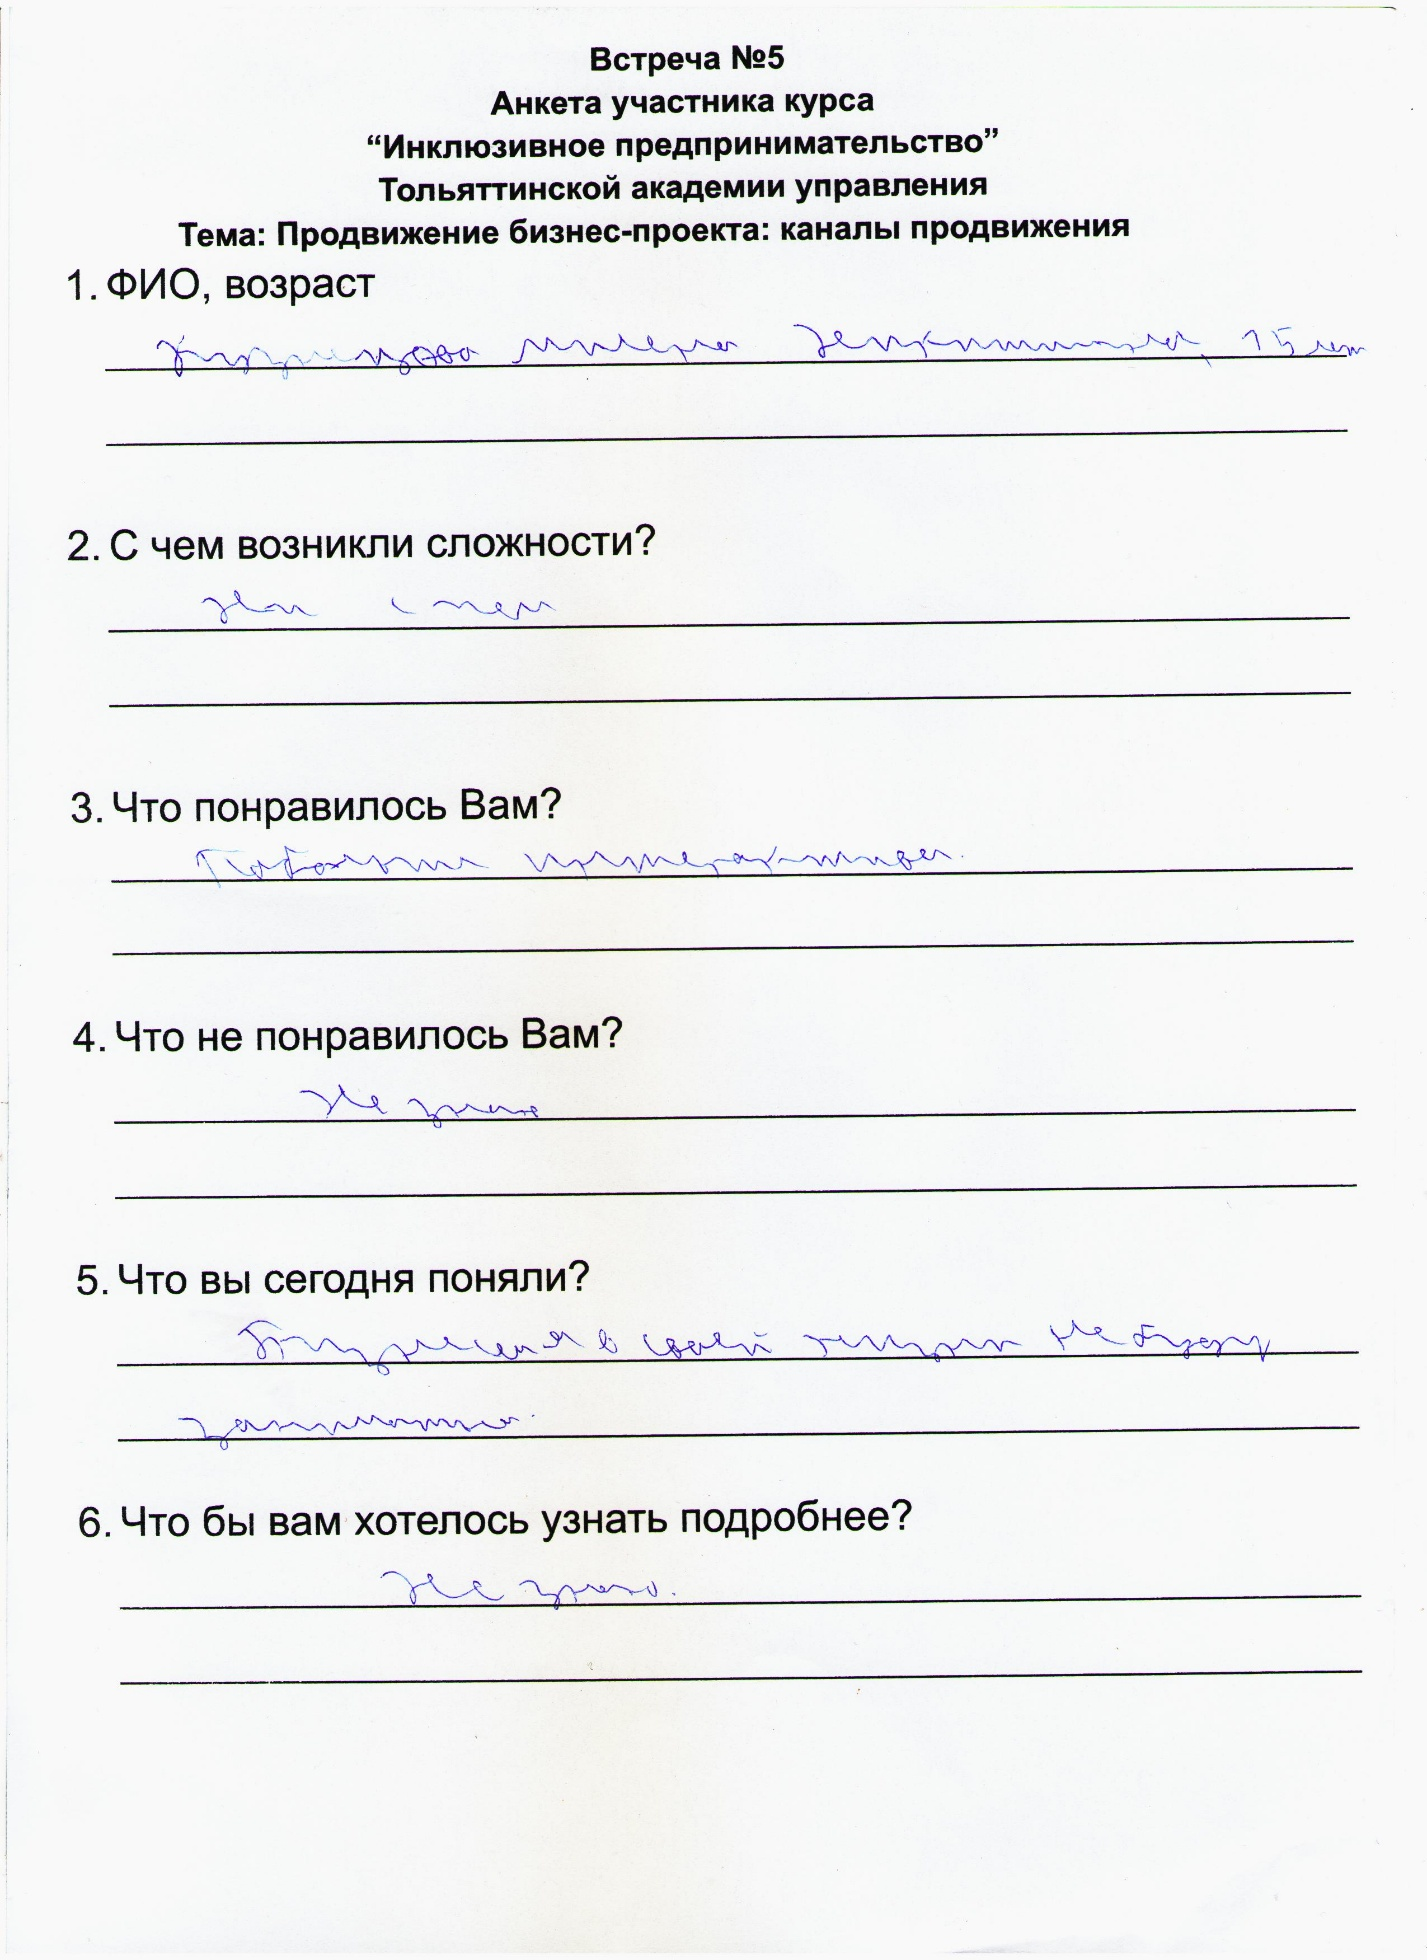 Встреча №5
Анкета участника курса
“Инклюзивное предпринимательство”
Тольяттинской академии управления
Тема: Продвижение бизнес-проекта: каналы продвижения
1. ФИО, возраст
15 лет
2. С чем возникли сложности?
Ни с чем
3. Что понравилось Вам?
4. Что не понравилось Вам?
Не знаю
5. Что вы сегодня поняли?
в своей жизни не буду
заниматься.
6. Что бы вам хотелось узнать подробнее?
Не знаю.